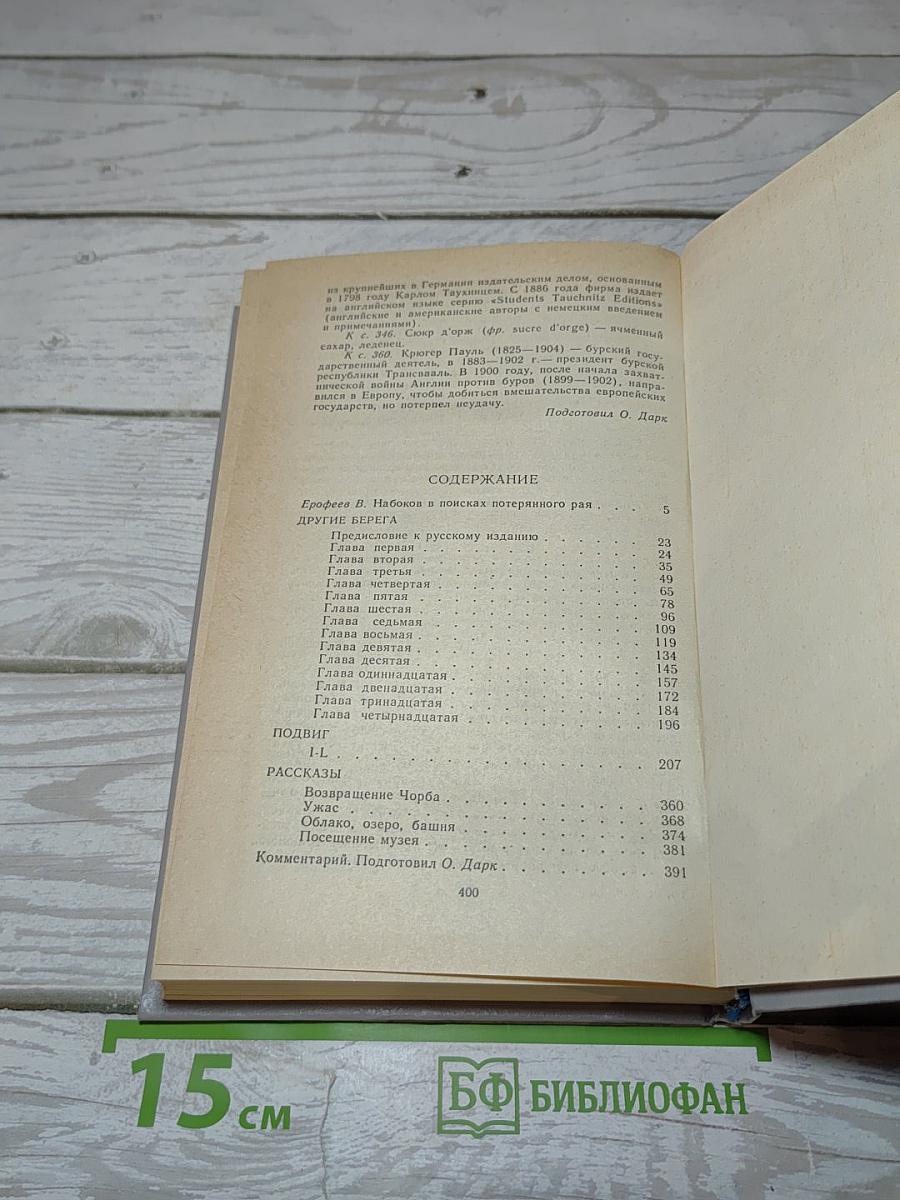 из крупнейших в Германии издательским делом, основанным
в 1798 году Карлом Таухницем. С 1886 года фирма издает
на английском языке серию «Students Tauchnitz Editions»
(английские и американские авторы с немецким введением
и примечаниями).
К с. 346. Сюкр д'орж (фр. sucre d'orge) — ячменный
сахар, леденец.
К с. 360. Крюгер Пауль (1825—1904) — бурский госу-
дарственный деятель, в 1883—1902 г.— президент бурской
республики Трансвааль. В 1900 году, после начала захват-
нической войны Англии против буров (1899—1902), напра-
вился в Европу, чтобы добиться вмешательства европейских
государств, но потерпел неудачу.
Подготовил О. Дарк
СОДЕРЖАНИЕ
Ерофеев В. Набоков в поисках потерянного рая . . . 5
ДРУГИЕ БЕРЕГА
Предисловие к русскому изданию . . . . . . 23
Глава первая . . . . . . . . . . . . 24
Глава вторая . . . . . . . . . . . . 35
Глава третья . . . . . . . . . . . . 49
Глава четвертая . . . . . . . . . . . 65
Глава пятая . . . . . . . . . . . . 78
Глава шестая . . . . . . . . . . . . 96
Глава седьмая . . . . . . . . . . . . 109
Глава восьмая . . . . . . . . . . . . 119
Глава девятая . . . . . . . . . . . . 134
Глава десятая . . . . . . . . . . . . 145
Глава одиннадцатая . . . . . . . . . . 157
Глава двенадцатая . . . . . . . . . . 172
Глава тринадцатая . . . . . . . . . . 184
Глава четырнадцатая . . . . . . . . . 196
ПОДВИГ
I-L . . . . . . . . . . . . . . . 207
РАССКАЗЫ
Возвращение Чорба . . . . . . . . . . 360
Ужас . . . . . . . . . . . . . . 368
Облако, озеро, башня . . . . . . . . . 374
Посещение музея . . . . . . . . . . . 381
Комментарий. Подготовил О. Дарк . . . . . . . . 391
400
15 см
БФ БИБЛИОФАН